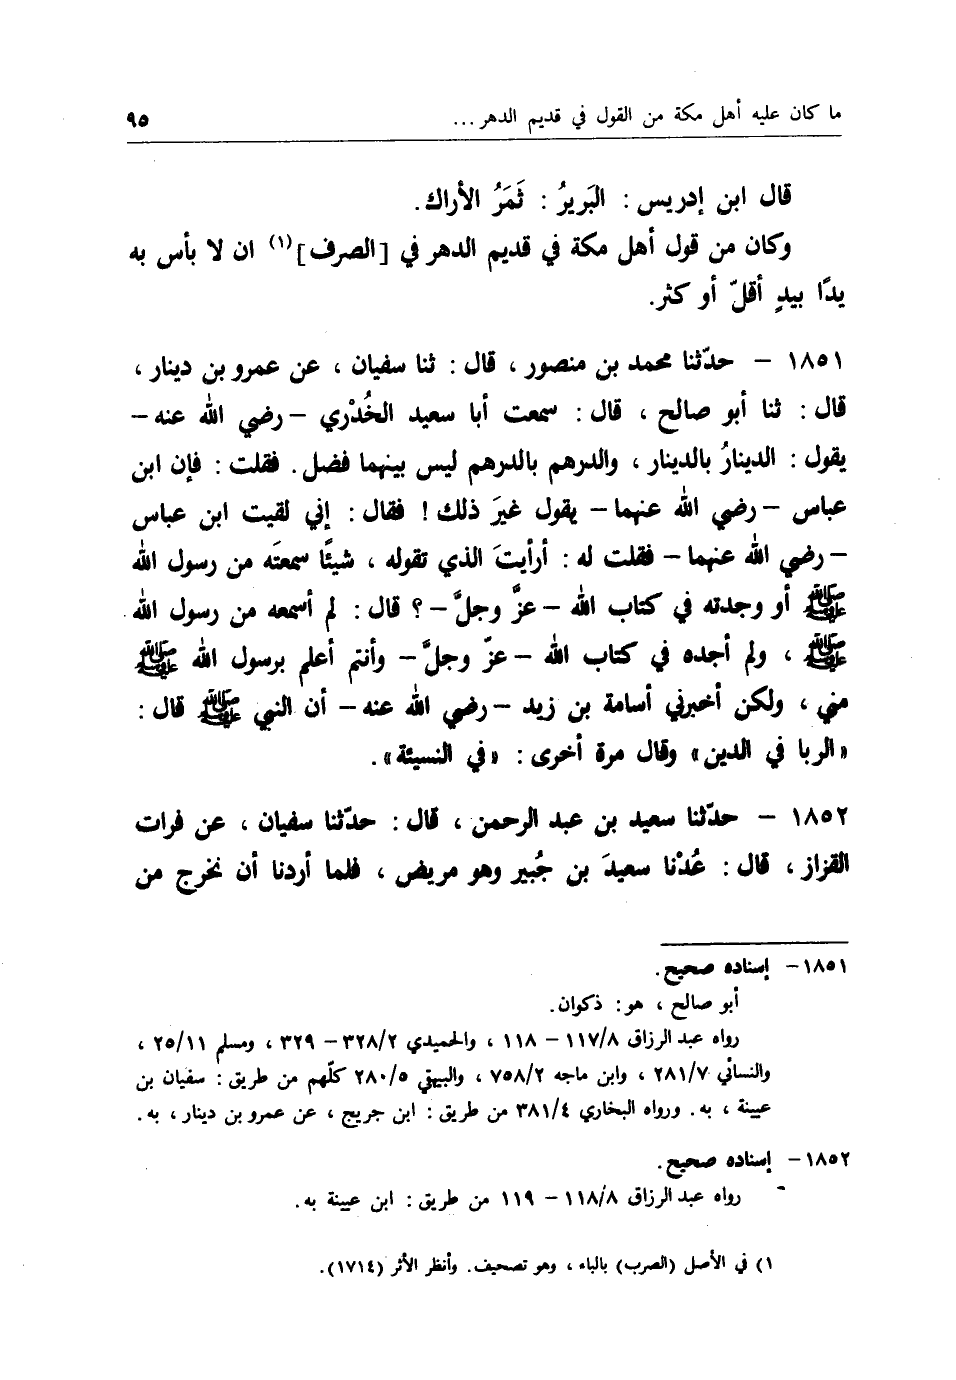 ما كان عليه أهل مكة من القول في قديم الدهر ... ٩٥
قال ابن إدريس : البَريرُ : ثَمَرُ الأراك .
وكان من قول أهل مكة في قديم الدهر في [الصرف] (١) ان لا بأس به
يدًا بيدٍ أقلّ أو كثر.
١٨٥١ – حدّثنا محمد بن منصور ، قال : ثنا سفيان ، عن عمرو بن دينار ،
قال : ثنا أبو صالح ، قال : سمعت أبا سعيد الخُدْري – رضي الله عنه –
يقول : الدينارُ بالدينار ، والدرهم بالدرهم ليس بينهما فضل . فقلت : فإن ابن
عباس – رضي الله عنهما – يقول غيرَ ذلك ! فقال : إني لقيت ابن عباس
– رضي الله عنهما – فقلت له : أرأيتَ الذي تقوله ، شيئًا سمعتَه من رسول الله
ﷺ أو وجدته في كتاب الله – عزَّ وجلَّ – ؟ قال : لم أسمعه من رسول الله
ﷺ ، ولم أجده في كتاب الله – عزّ وجلَّ – وأنتم أعلم برسول الله ﷺ
مني ، ولكن أخبرني أسامة بن زيد – رضي الله عنه – أن النبي ﷺ قال :
«الربا في الدين» وقال مرة أخرى : «في النسيئة» .
١٨٥٢ – حدّثنا سعيد بن عبد الرحمن ، قال : حدّثنا سفيان ، عن فرات
القزاز ، قال : عُدْنا سعيدَ بن جُبير وهو مريض ، فلما أردنا أن نخرج من
١٨٥١ – إسناده صحيح .
أبو صالح ، هو : ذكوان .
رواه عبد الرزاق ١١٧/٨ – ١١٨ ، والحميدي ٣٢٨/٢ – ٣٢٩ ، ومسلم ٢٥/١١ ،
والنسائي ٢٨١/٧ ، وابن ماجه ٧٥٨/٢ ، والبيهقي ٢٨٠/٥ كلّهم من طريق : سفيان بن
عيينة ، به . ورواه البخاري ٣٨١/٤ من طريق : ابن جريج ، عن عمرو بن دينار ، به .
١٨٥٢ – إسناده صحيح .
رواه عبد الرزاق ١١٨/٨ – ١١٩ من طريق : ابن عيينة به .
١) في الأصل (الصرب) بالباء ، وهو تصحيف . وأنظر الأثر (١٧١٤) .